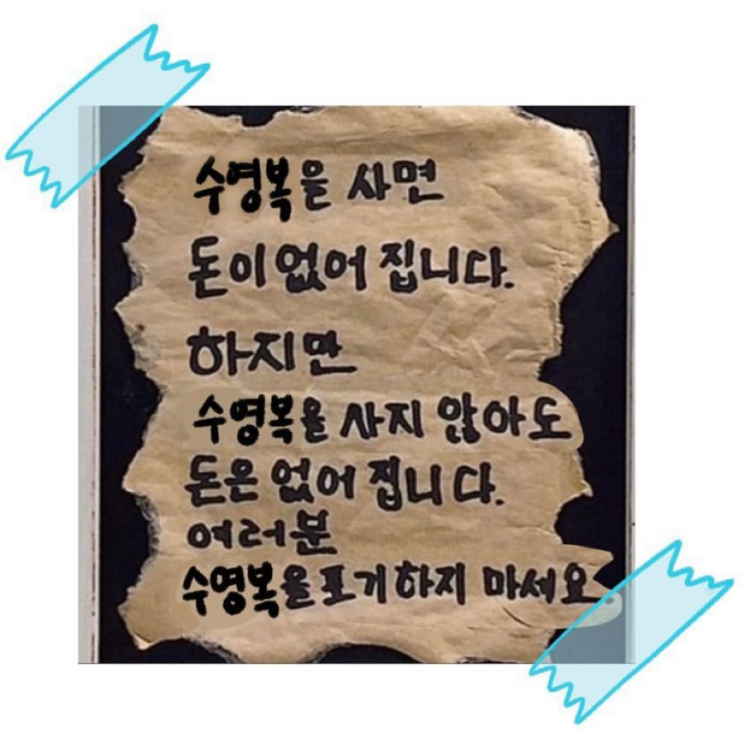 수영복을 사면
돈이 없어 집니다.
하지만
수영복을 사지 않아도
돈은 없어 집니다.
여러분
수영복을 포기하지 마세요